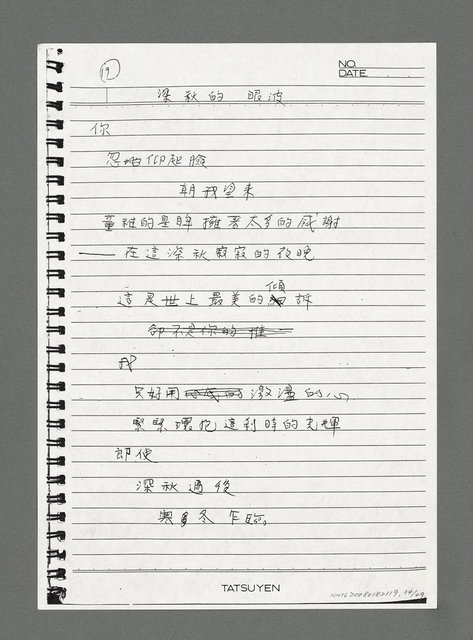 19
NO.
DATE
深秋的 眼波
你
忽地仰起臉
朝我望來
童稚的星眸擁著太多的感謝
——在這深秋寂寂的夜晚
這是世上最美的傾訴
卻不是你的
我
只好用激盪的心
緊緊環抱這刹時的光輝
即使
深秋過後
寒冬乍臨。
TATSUYEN